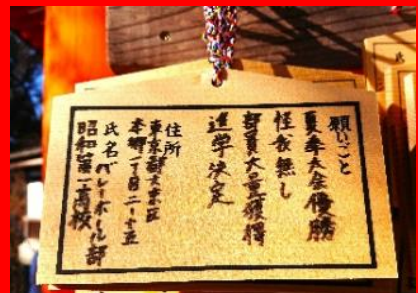 願いごと
夏季大会優勝
怪我無し
部員大量獲得
進学決定
住所
東京都文京区
本郷一丁目二ー十五
氏名バレーボール部
昭和第一高校